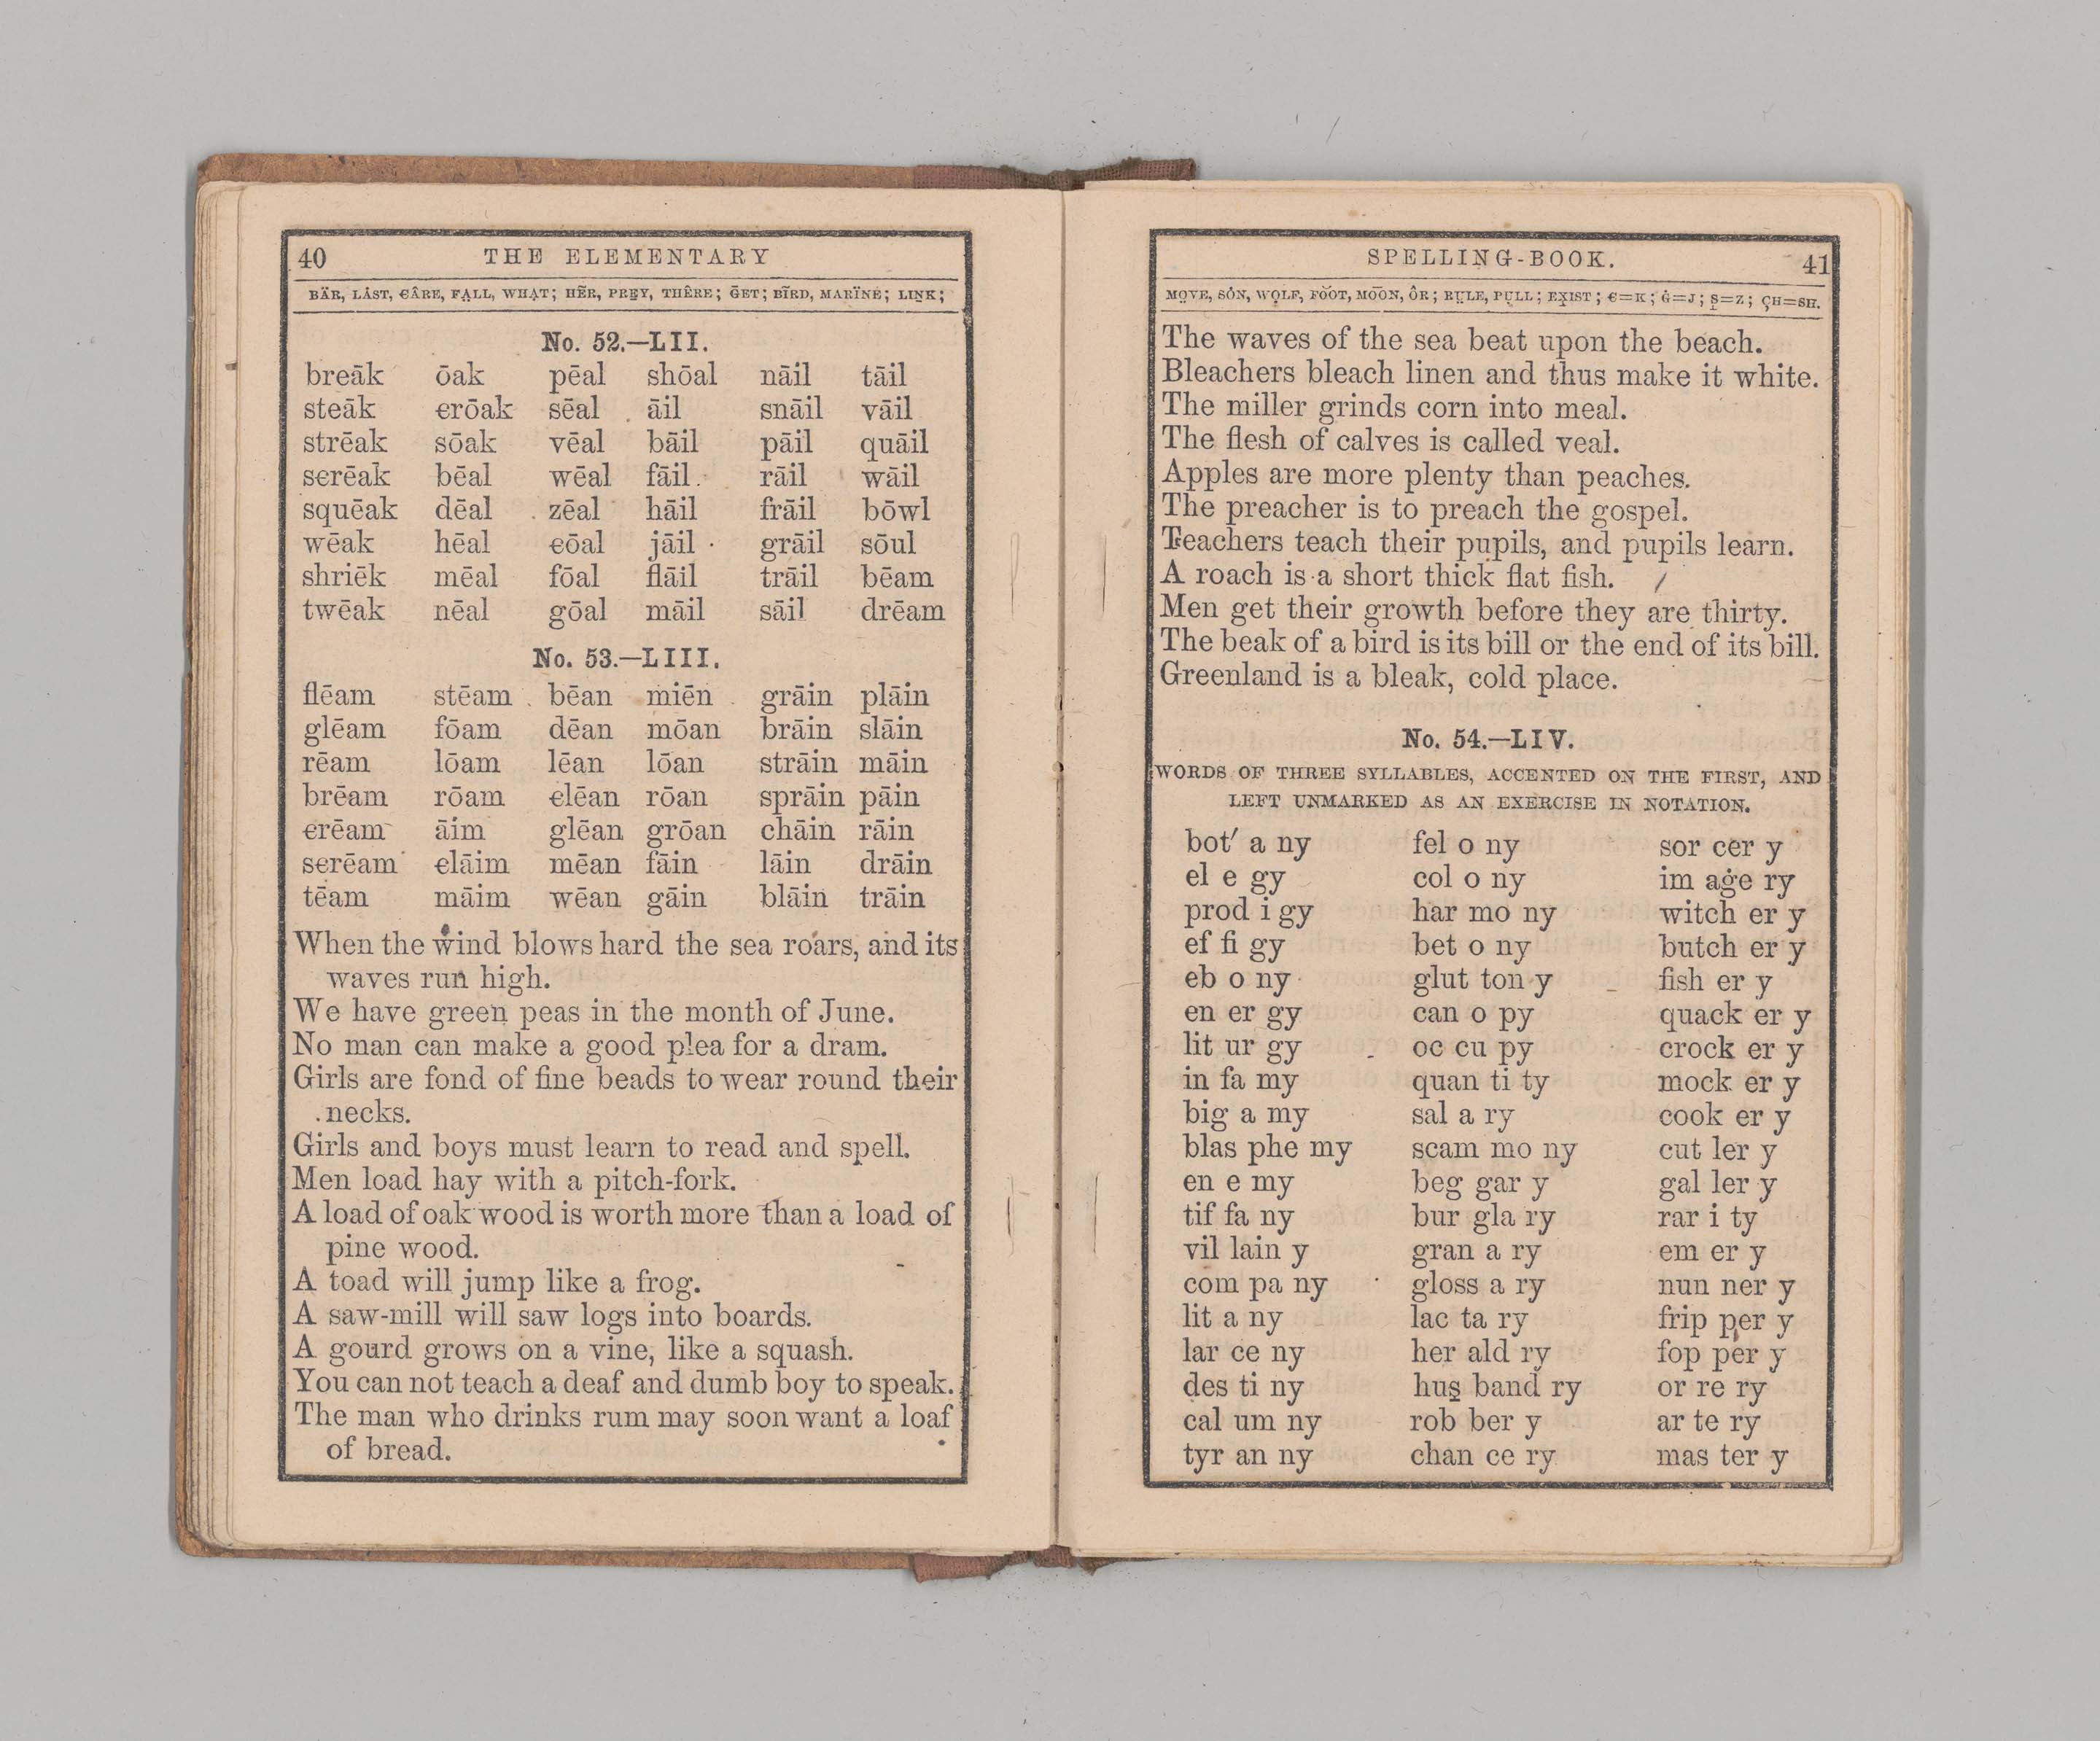 40 THE ELEMENTARY
BÄR, LÅST, ЄÂRE, FẠLL, WHẠT; HẼR, PREY, THÊRE; ḠET; BĨRD, MARÏNE; LIṈK;
No. 52.—LII.
breāk ōak pēal shōal nāil tāil
steāk єrōak sēal āil snāil vāil
strēak sōak vēal bāil pāil quāil
sєrēak bēal wēal fāil rāil wāil
squēak dēal zēal hāil frāil bōwl
wēak hēal єōal jāil grāil sōul
shriēk mēal fōal flāil trāil bēam
twēak nēal gōal māil sāil drēam
No. 53.—LIII.
flēam stēam bēan miēn grāin plāin
glēam fōam dēan mōan brāin slāin
rēam lōam lēan lōan strāin māin
brēam rōam єlēan rōan sprāin pāin
єrēam āim glēan grōan chāin rāin
sєrēam єlāim mēan fāin lāin drāin
tēam māim wēan gāin blāin trāin
When the wind blows hard the sea roars, and its
waves run high.
We have green peas in the month of June.
No man can make a good plea for a dram.
Girls are fond of fine beads to wear round their
necks.
Girls and boys must learn to read and spell.
Men load hay with a pitch-fork.
A load of oak wood is worth more than a load of
pine wood.
A toad will jump like a frog.
A saw-mill will saw logs into boards.
A gourd grows on a vine, like a squash.
You can not teach a deaf and dumb boy to speak.
The man who drinks rum may soon want a loaf
of bread.
SPELLING-BOOK. 41
MO̤VE, SȮN, WO̤LF, FO͝OT, MO͞ON, ÔR; RṲLE, PṲLL; EX̱IST; Є=K; Ġ=J; S̱=Z; ÇH=SH.
The waves of the sea beat upon the beach.
Bleachers bleach linen and thus make it white.
The miller grinds corn into meal.
The flesh of calves is called veal.
Apples are more plenty than peaches.
The preacher is to preach the gospel.
Teachers teach their pupils, and pupils learn.
A roach is a short thick flat fish.
Men get their growth before they are thirty.
The beak of a bird is its bill or the end of its bill.
Greenland is a bleak, cold place.
No. 54.—LIV.
WORDS OF THREE SYLLABLES, ACCENTED ON THE FIRST, AND
LEFT UNMARKED AS AN EXERCISE IN NOTATION.
bot′ a ny fel o ny sor cer y
el e gy col o ny im aġe ry
prod i gy har mo ny witch er y
ef fi gy bet o ny butch er y
eb o ny glut ton y fish er y
en er gy can o py quack er y
lit ur gy oc cu py crock er y
in fa my quan ti ty mock er y
big a my sal a ry cook er y
blas phe my scam mo ny cut ler y
en e my beg gar y gal ler y
tif fa ny bur gla ry rar i ty
vil lain y gran a ry em er y
com pa ny gloss a ry nun ner y
lit a ny lac ta ry frip per y
lar ce ny her ald ry fop per y
des ti ny hus̱ band ry or re ry
cal um ny rob ber y ar te ry
tyr an ny chan ce ry mas ter y